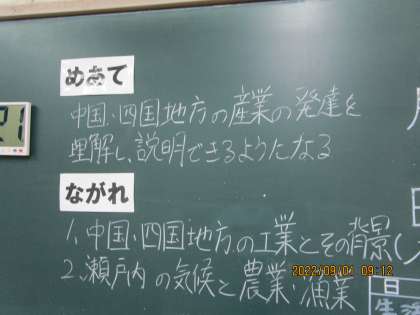 めあて
中国、四国地方の産業の発達を
理解し、説明できるようになる
ながれ
1、中国、四国地方の工業とその背景(
2、瀬戸内の気候と農業、漁業
2022/09/01 09:12
日